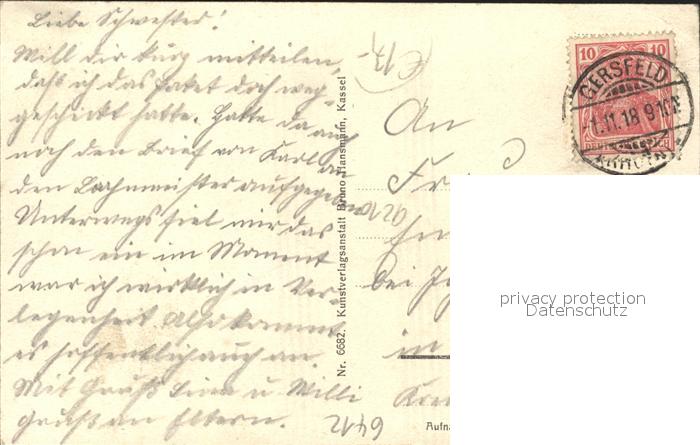 Liebe Schwester!
Will dir kurz mitteilen,
daß ich das Paket doch weg-
geschickt hatte. Hatte da auch
noch den Brief von Karl an
den Bahnmeister aufgegeben
Unterwegs fiel mir das
schon ein im Moment
war ich wirklich in Ver-
legenheit Also kommt
es hoffentlich auch an.
Mit Gruß Lina u. Willi
Gruß an Eltern.
6412
€ 13,-
9210
Nr. 6682. Kunstverlagsanstalt Bruno Hansmann, Kassel
An
bei
in
Aufna
10 10
GERSFELD
1.11.18 9-10
privacy protection
Datenschutz